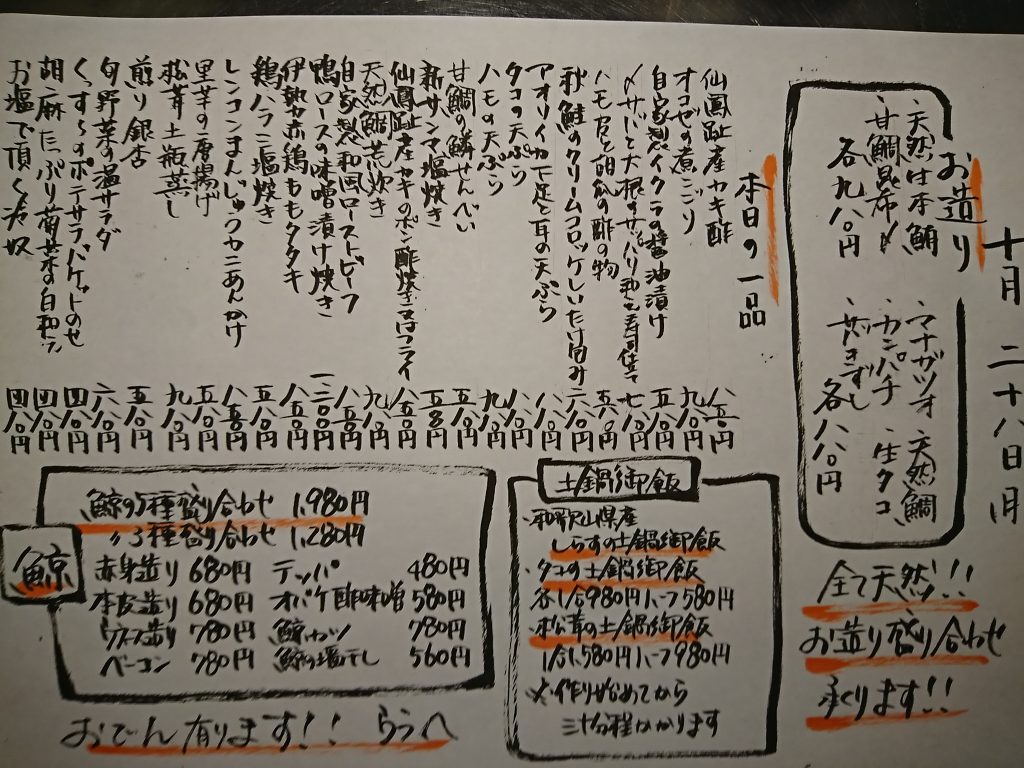 十月二十八日月
お造り
、天然は本鮪
、甘鯛昆布〆
各九八〇円
、マナガツオ
、カンパチ
各八八〇円
天然鯛
生タコ
全て天然!!
お造り盛り合わせ
承ります!!
本日の一品
仙鳳趾産カキ酢 八五〇円
オコゼの煮こごり 九八〇円
自家製イクラの醤油漬け 五八〇円
〆サバと大根のサッパリ和え寿司仕立て 七八〇円
ハモ皮と胡瓜の酢の物 五八〇円
秋鮭のクリームコロッケしいたけ包み 六八〇円
アオリイカ下足と耳の天ぷら 八八〇円
タコの天ぷら 八八〇円
ハモの天ぷら 九八〇円
甘鯛の鱗せんべい 五八〇円
新サンマ塩焼き
仙鳳趾産カキのポン酢焼き又はフライ 八五〇円
天然鯛荒炊き 九八〇円
自家製和風ローストビーフ 八五〇円
鴨ロースの味噌漬け焼き 一二〇〇円
伊勢赤鶏ももタタキ 八五〇円
鶏ハラミ塩焼き 五八〇円
レンコンまんじゅうカニあんかけ 八五〇円
里芋の唐揚げ 五八〇円
松茸土瓶蒸し 九八〇円
煎り銀杏 五八〇円
旬野菜の温サラダ 六八〇円
くっすんのポテサラバケットのせ 四八〇円
胡麻たっぷり菊菜の白和え 四八〇円
お塩で頂く冷奴 四八〇円
土鍋御飯
・和歌山県産
しらすの土鍋御飯
・タコの土鍋御飯
各1合980円ハーフ580円
・松茸の土鍋御飯
1合1,580円ハーフ980円
※作り始めてから
三十分程かかります
鯨
鯨の5種盛り合わせ 1,980円
〃3種盛り合わせ 1,280円
赤身造り 680円 テッパ 480円
本皮造り 680円 オバケ酢味噌 580円
ウネス造り 780円 鯨カツ 780円
ベーコン 780円 鯨の塩干し 560円
おでん有ります!! うらへ